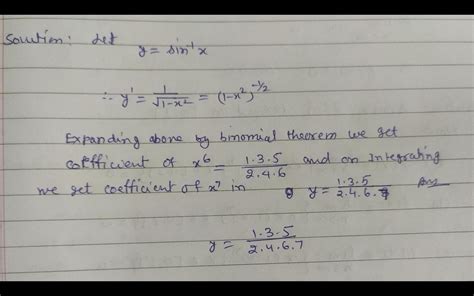 Solution: Let
y = sin⁻¹x
∴ y' = 1/√(1-x²) = (1-x²)^(-1/2)
Expanding above by binomial theorem we get
coefficient of x⁶ = 1.3.5/2.4.6 and on Integrating
we get coefficient of x⁷ in y = 1.3.5/2.4.6.7 Ans
y = 1.3.5/2.4.6.7